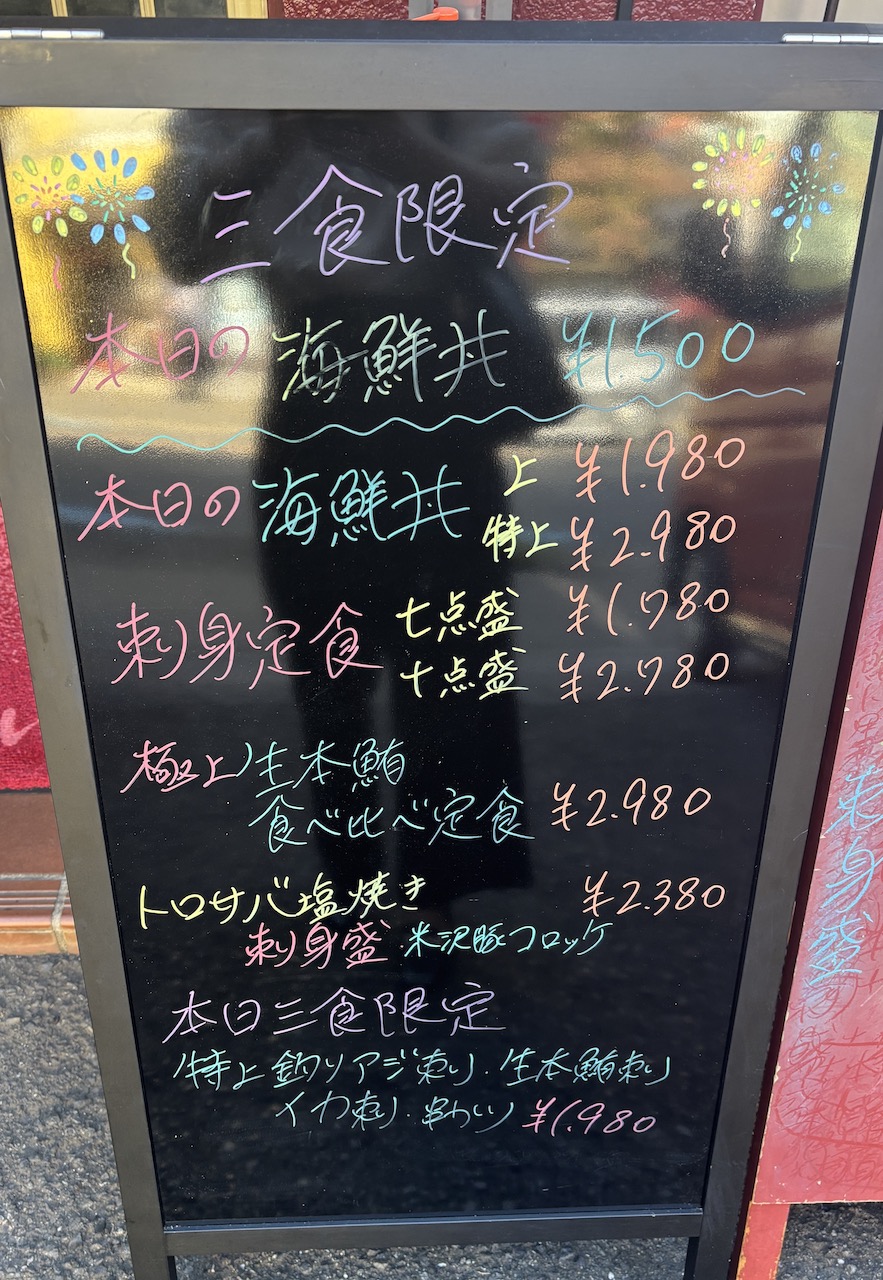 三食限定
本日の海鮮丼 ¥1.500
本日の海鮮丼 上 ¥1.980
特上 ¥2.980
刺身定食 七点盛 ¥1.780
十点盛 ¥2.780
極上生本鮪
食べ比べ定食 ¥2.980
トロサバ塩焼き ¥2.380
刺身盛・米沢豚コロッケ
本日三食限定
特上釣りアジ刺し・生本鮪刺し
イカ刺し・ ¥1.980
刺身盛